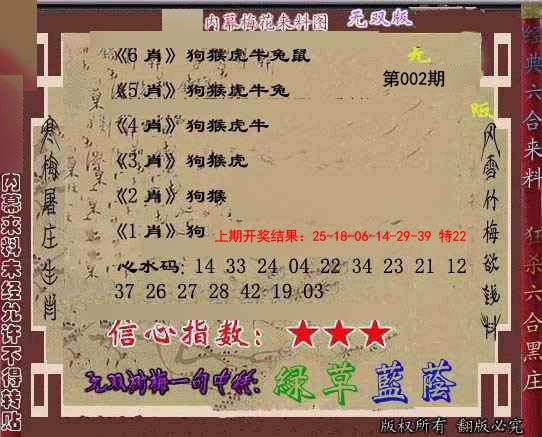 内幕梅花来料图 无双版
《6 肖》狗猴虎牛兔鼠
第002期
《5 肖》狗猴虎牛兔
《4 肖》狗猴虎牛
《3 肖》狗猴虎
《2 肖》狗猴
《1 肖》狗
上期开奖结果: 25-18-06-14-29-39 特22
心水码: 14 33 24 04 22 34 23 21 12
37 26 27 28 42 19 03
信心指数: ★★★
绿草蓝荫
版权所有 翻版必究
寒梅屠庄生肖
风雪竹梅欲钱料
内幕来料未经允许不得转贴
经典六合来料 狂杀六合黑庄